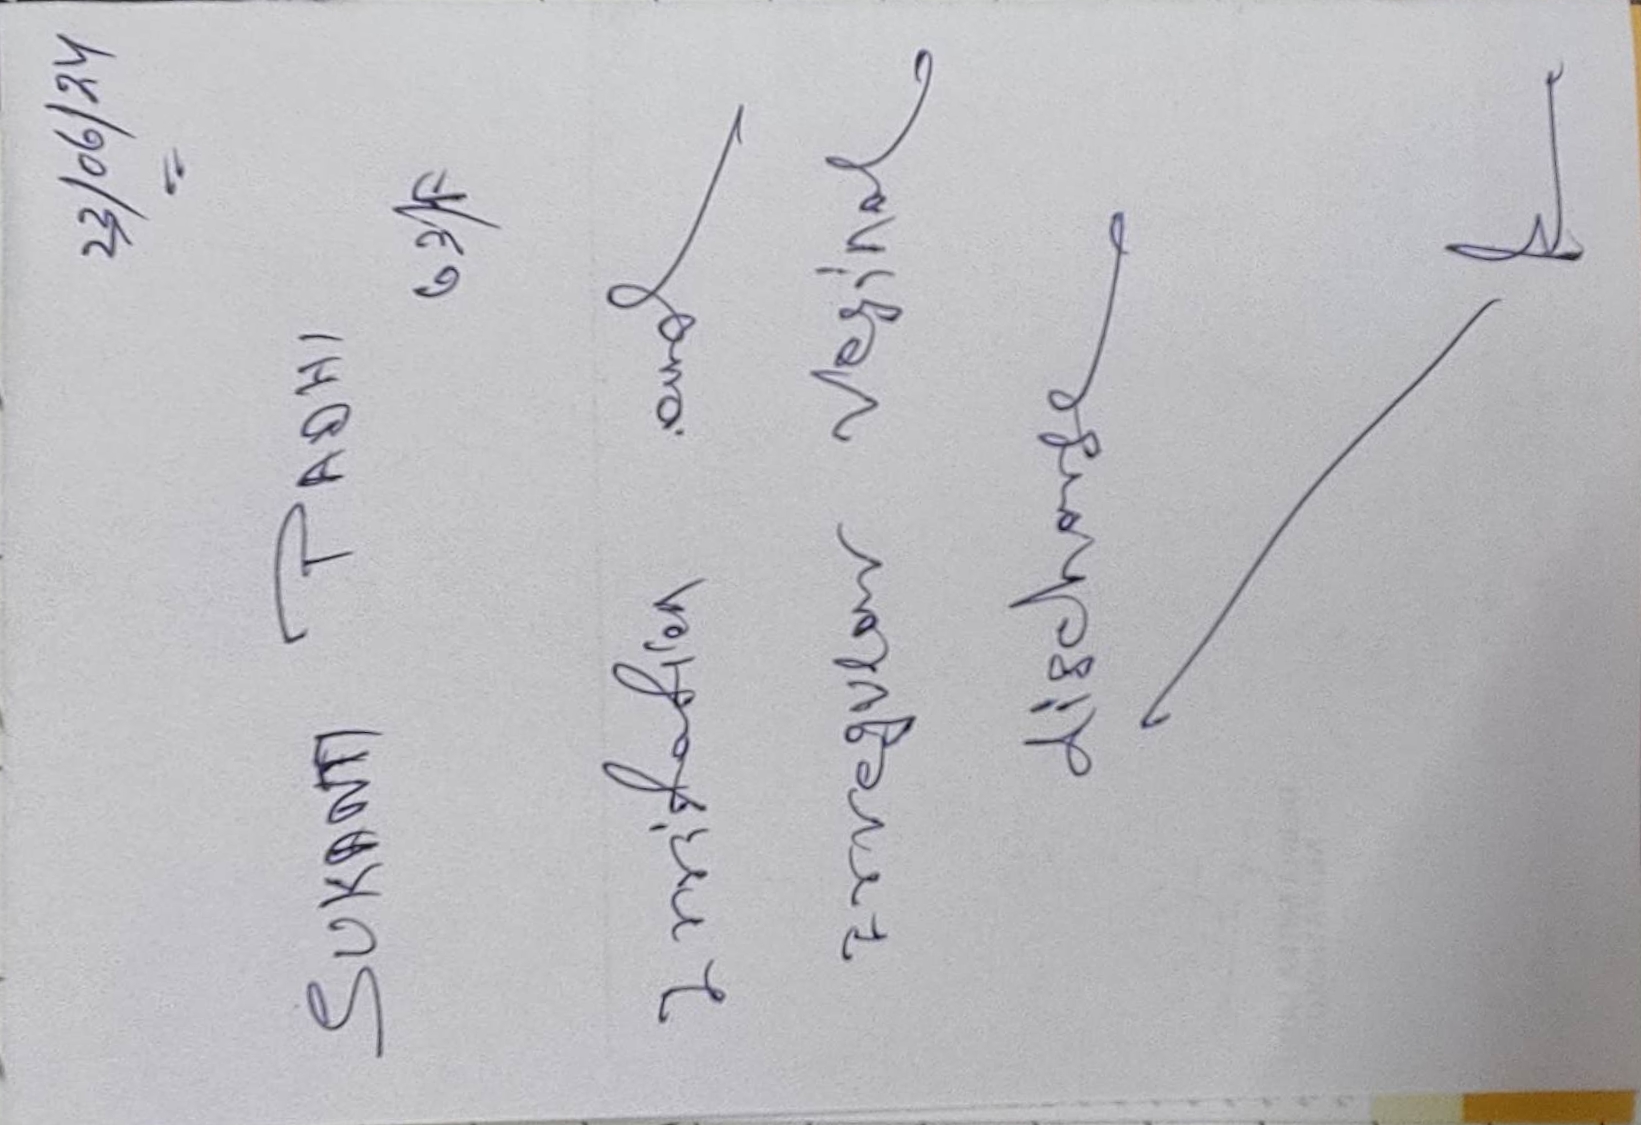 23/06/24
SUKANTI TADHI
63/F
Irrigation and
Frequent Vaginal
discharge